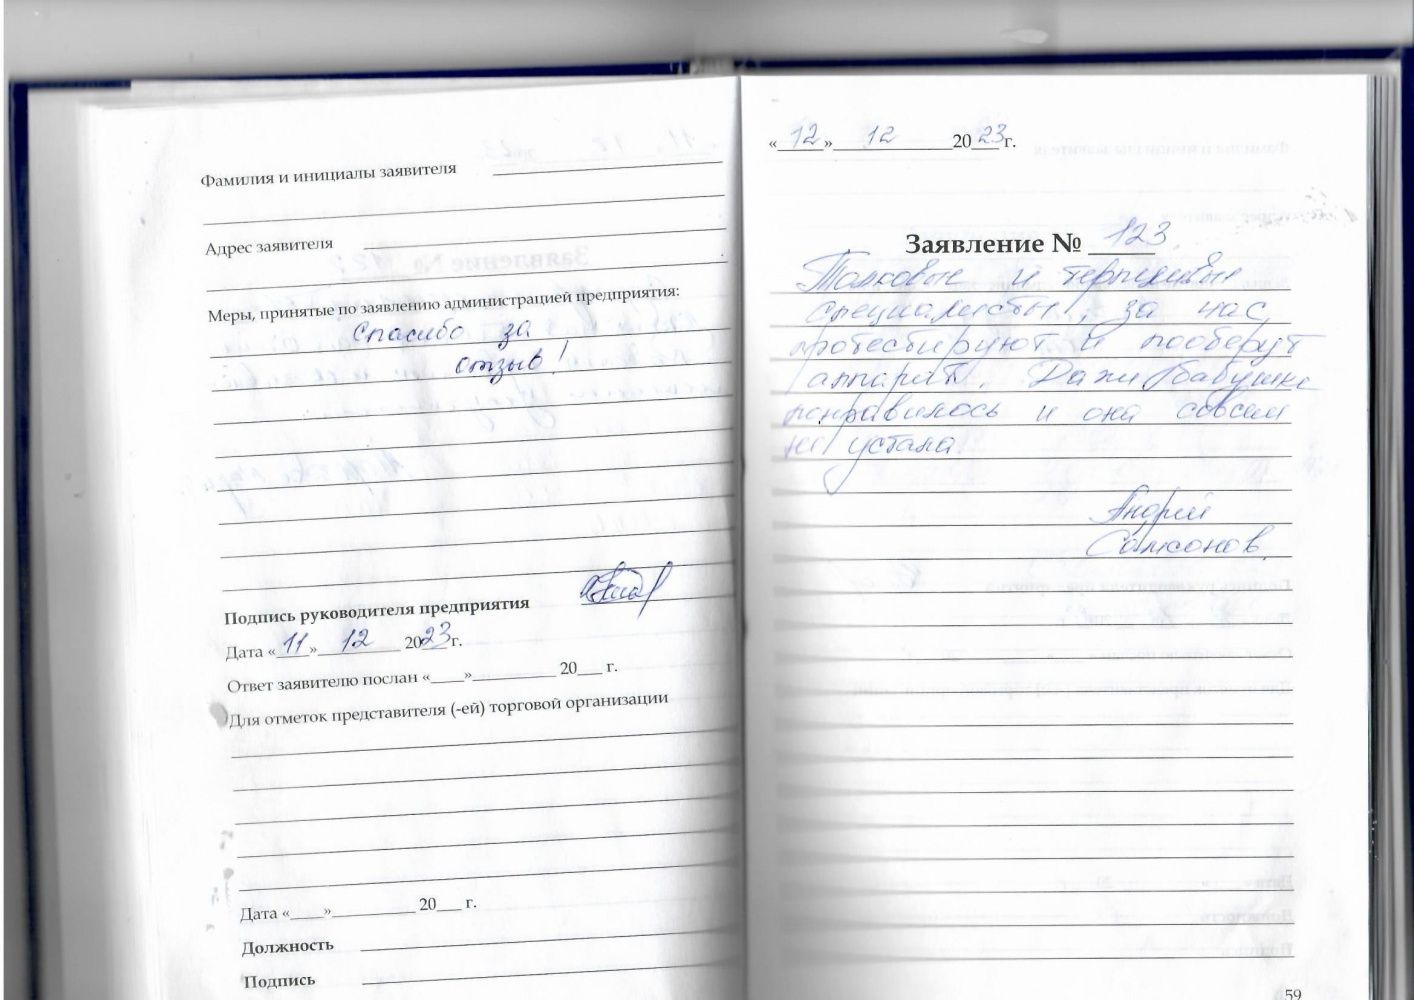 Фамилия и инициалы заявителя
Адрес заявителя
Меры, принятые по заявлению администрацией предприятия:
Спасибо за
отзыв!
Подпись руководителя предприятия
Дата «11» 12 2023 г.
Ответ заявителю послан «____»__________ 20___ г.
Для отметок представителя (-ей) торговой организации
Дата «____»__________ 20___ г.
Должность
Подпись
«12» 12 2023 г.
Заявление № 123
Толковые и терпеливые
специалисты, за нас
протестируют и пооберут
аппарат. Даже бабушке
понравилось и она совсем
не устала.
Андрей
Самсонов.
59